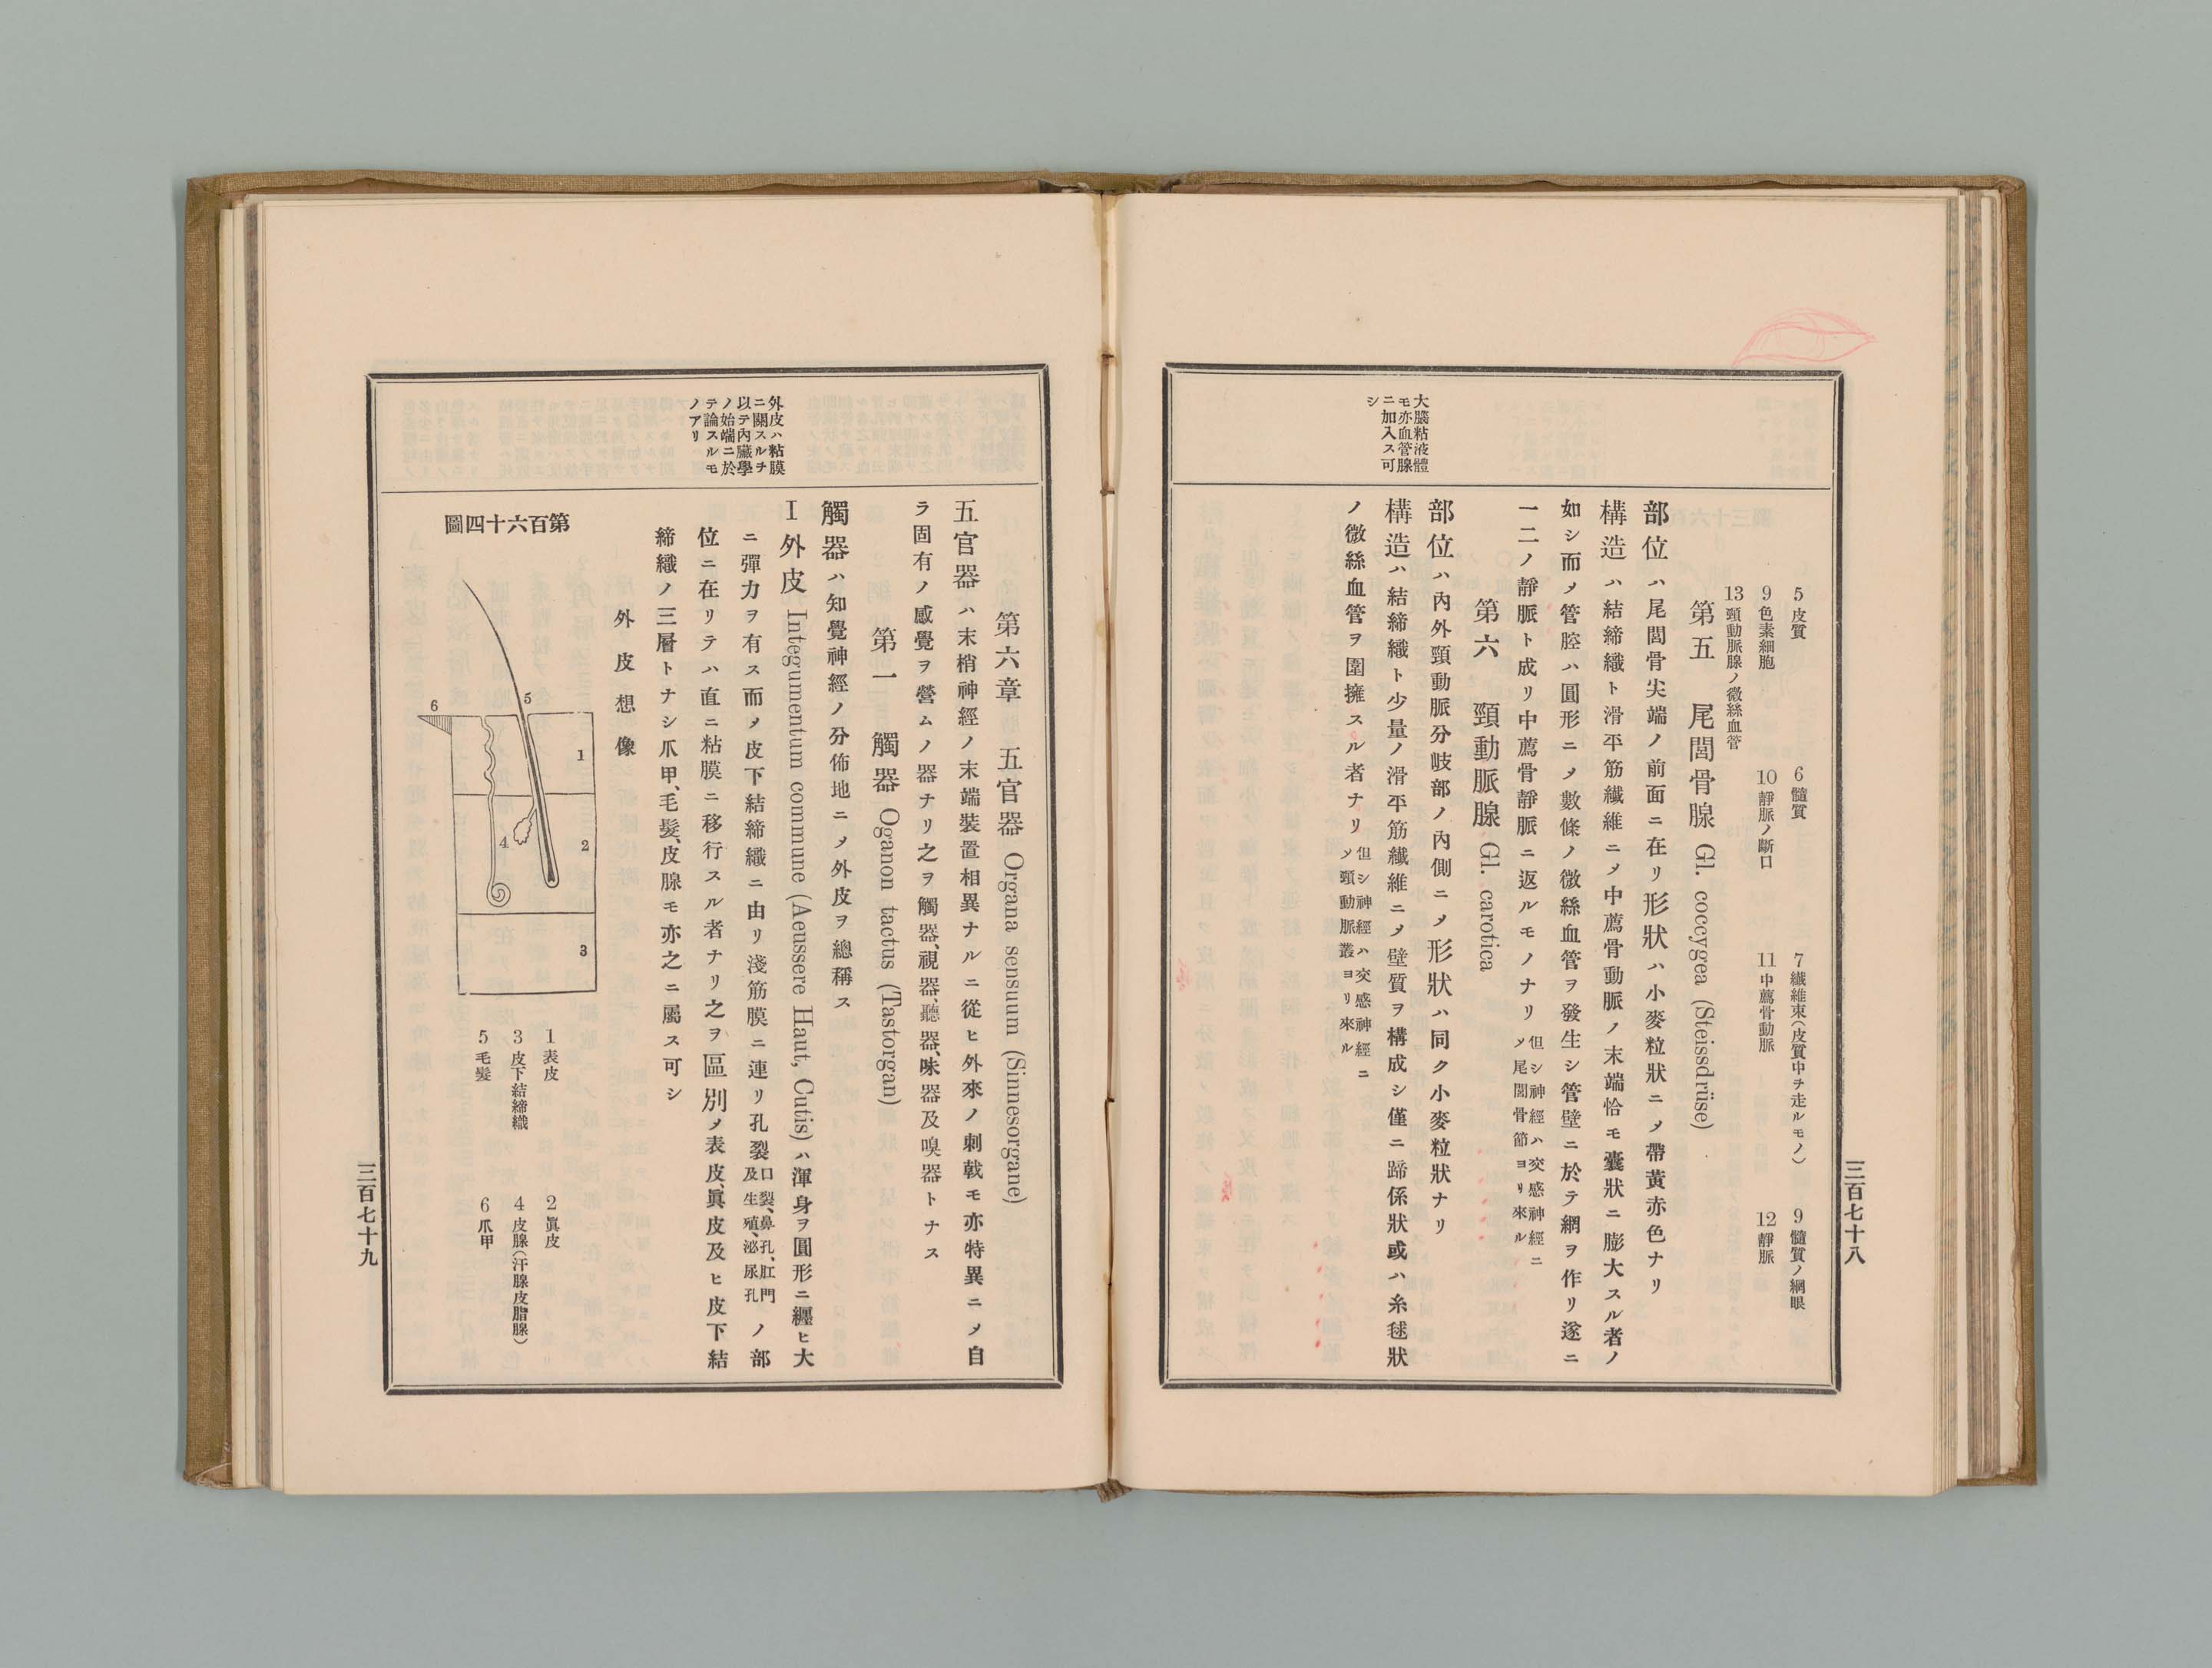 大腦粘液體
モ亦血管腺
ニ加入ス可
シ
5 皮質
6 髓質
7 纖維束(皮質中チ走ルモノ)
9 髓質ノ網眼
9 色素細胞
10 靜脈ノ斷口
11 中薦骨動脈
12 靜脈
13 頸動脈腺ノ微絲血管
第五 尾閭骨腺 Gl. coccygea (Steissdrüse)
部位ハ尾閭骨尖端ノ前面ニ在リ形狀ハ小麥粒狀ニメ帶黃赤色ナリ
構造ハ結締織ト滑平筋纖維ニメ中薦骨動脈ノ末端恰モ囊狀ニ膨大スル者ノ
如シ而メ管腔ハ圓形ニメ數條ノ微絲血管ヲ發生シ管壁ニ於テ網ヲ作リ遂ニ
一二ノ靜脈ト成リ中薦骨靜脈ニ返ルモノナリ 但シ神經ハ交感神經ニ
メ尾閭骨節ヨリ來ル
第六 頸動脈腺 Gl. carotica
部位ハ內外頸動脈分岐部ノ內側ニメ形狀ハ同ク小麥粒狀ナリ
構造ハ結締織ト少量ノ滑平筋纖維ニメ壁質ヲ構成シ僅ニ蹄係狀或ハ糸毬狀
ノ微絲血管ヲ圍擁スル者ナリ 但シ神經ハ交感神經ニ
メ頸動脈叢ヨリ來ル
三百七十八
外皮ハ粘膜
ニ關スルチ
以テ內臟學
ノ始端ニ於
テ論スルモ
ノアリ
第六章 五官器 Organa sensuum (Sinnesorgane)
五官器ハ末梢神經ノ末端裝置相異ナルニ從ヒ外來ノ刺戟モ亦特異ニメ自
ラ固有ノ感覺ヲ營ムノ器ナリ之ヲ觸器、視器、聽器、味器及嗅器トナス
第一 觸器 Oganon tactus (Tastorgan)
觸器ハ知覺神經ノ分佈地ニメ外皮ヲ總稱ス
I 外皮 Integumentum commune (Aeussere Haut, Cutis) ハ渾身ヲ圓形ニ纒ヒ大
ニ彈力ヲ有ス而メ皮下結締織ニ由リ淺筋膜ニ連リ孔裂 口裂、鼻孔、肛門
及生殖、泌尿孔 ノ部
位ニ在リテハ直ニ粘膜ニ移行スル者ナリ之ヲ區別メ表皮、眞皮及ヒ皮下結
締織ノ三層トナシ爪甲、毛髮、皮腺モ亦之ニ屬ス可シ
外皮想像
第百六十四圖
5
6
1
4
2
3
1 表皮
2 眞皮
3 皮下結締織
4 皮腺(汗腺皮脂腺)
5 毛髮
6 爪甲
三百七十九